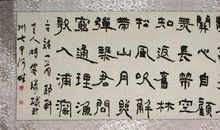 無長策空
知返舊林
松風吹解
帶山月照
彈琴君問
窮通理漁
歌入浦深